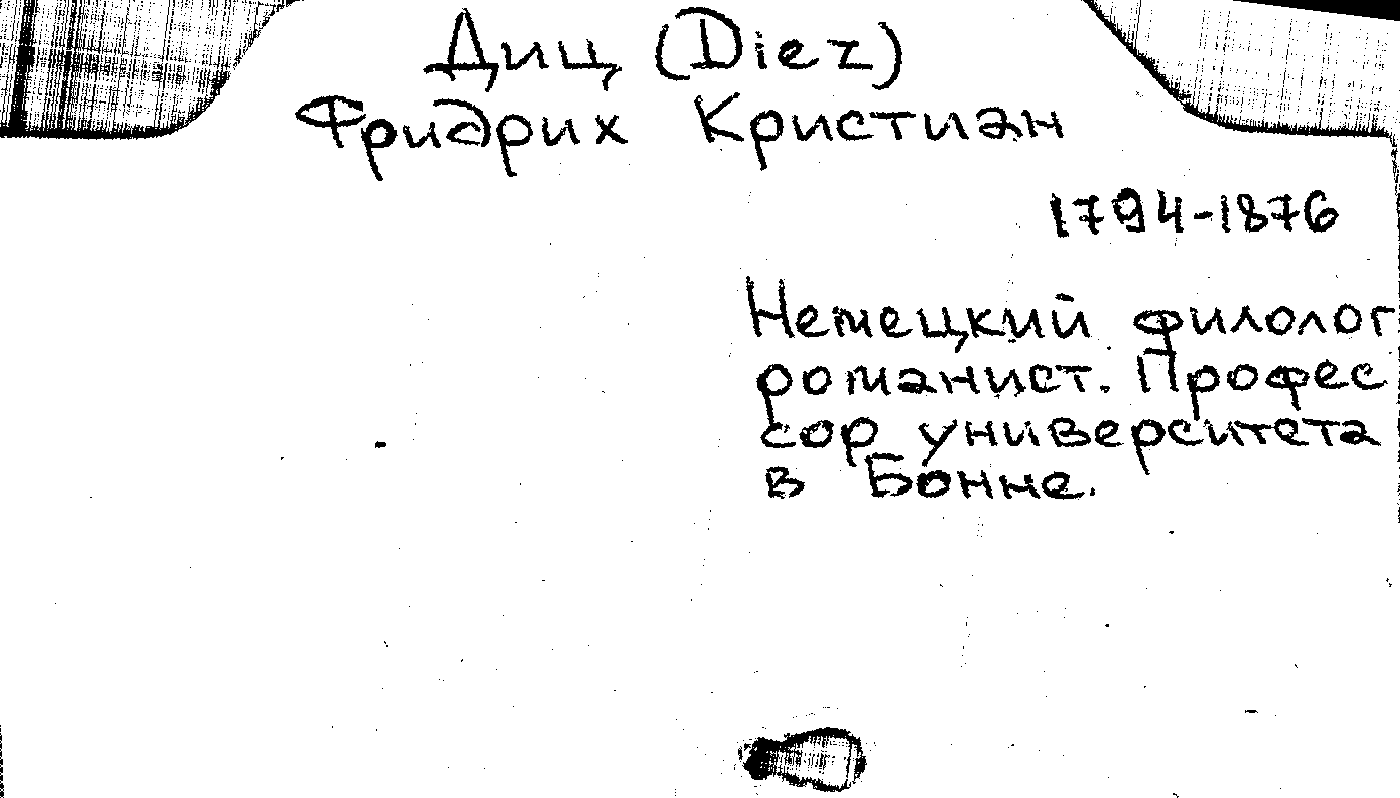 Диц (Diez)
Фридрих Кристиан
1794-1876
Немецкий филолог
романист. Профес
сор университета
в Бонне.